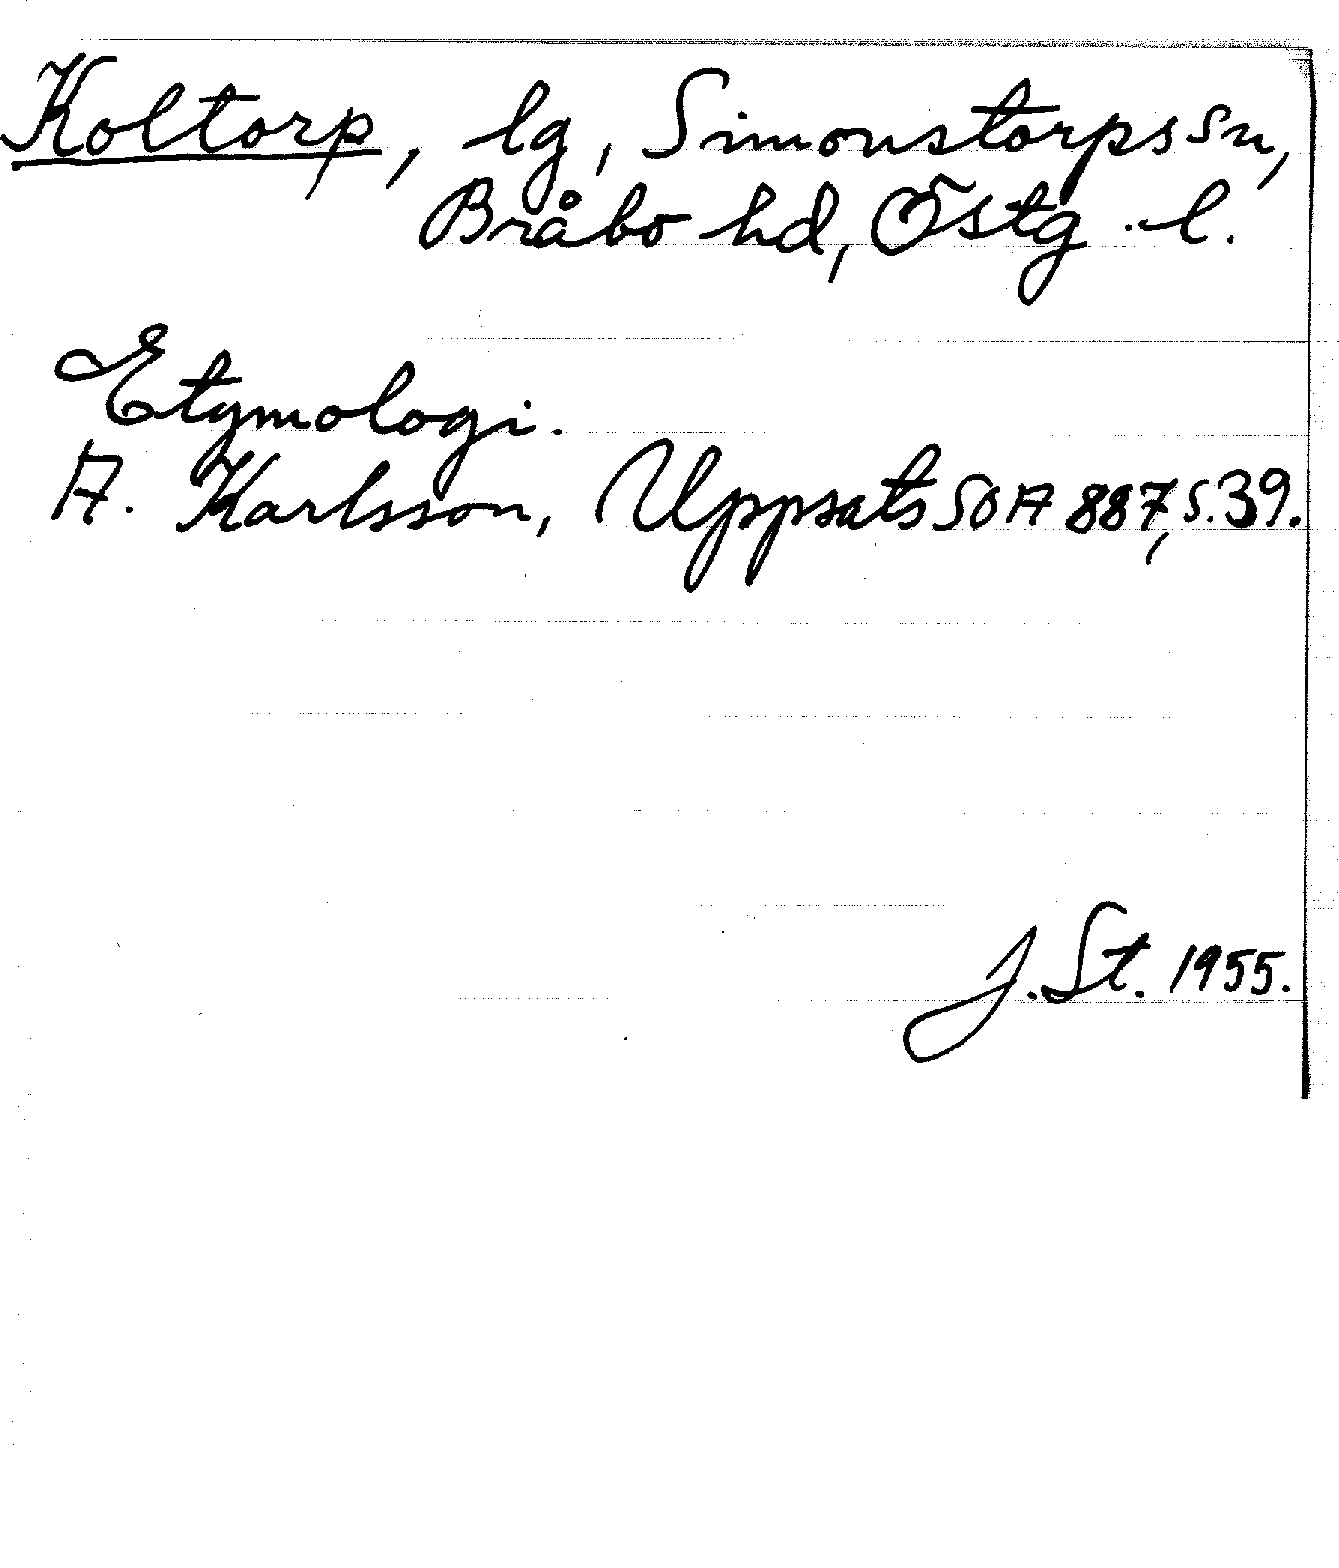 Koltorp, lg, Simonstorps sn,
Bråbo hd, Östg. l.
Etymologi.
A. Karlsson, Uppsats SOA 887, s. 39.
J. St. 1955.